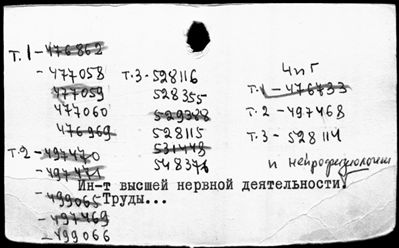 т.1 - 476862
- 477058
477059
477060
476969
т.2 - 497470
- 497471
499065
- 497469
- 499066
т.3 - 528116
528355
529388
528115
531448
548376
ЧиГ
т.1 - 476733
т.2 - 497468
т.3 - 528114
и нейрофизиологии
Ин-т высшей нервной деятельности.
Труды...